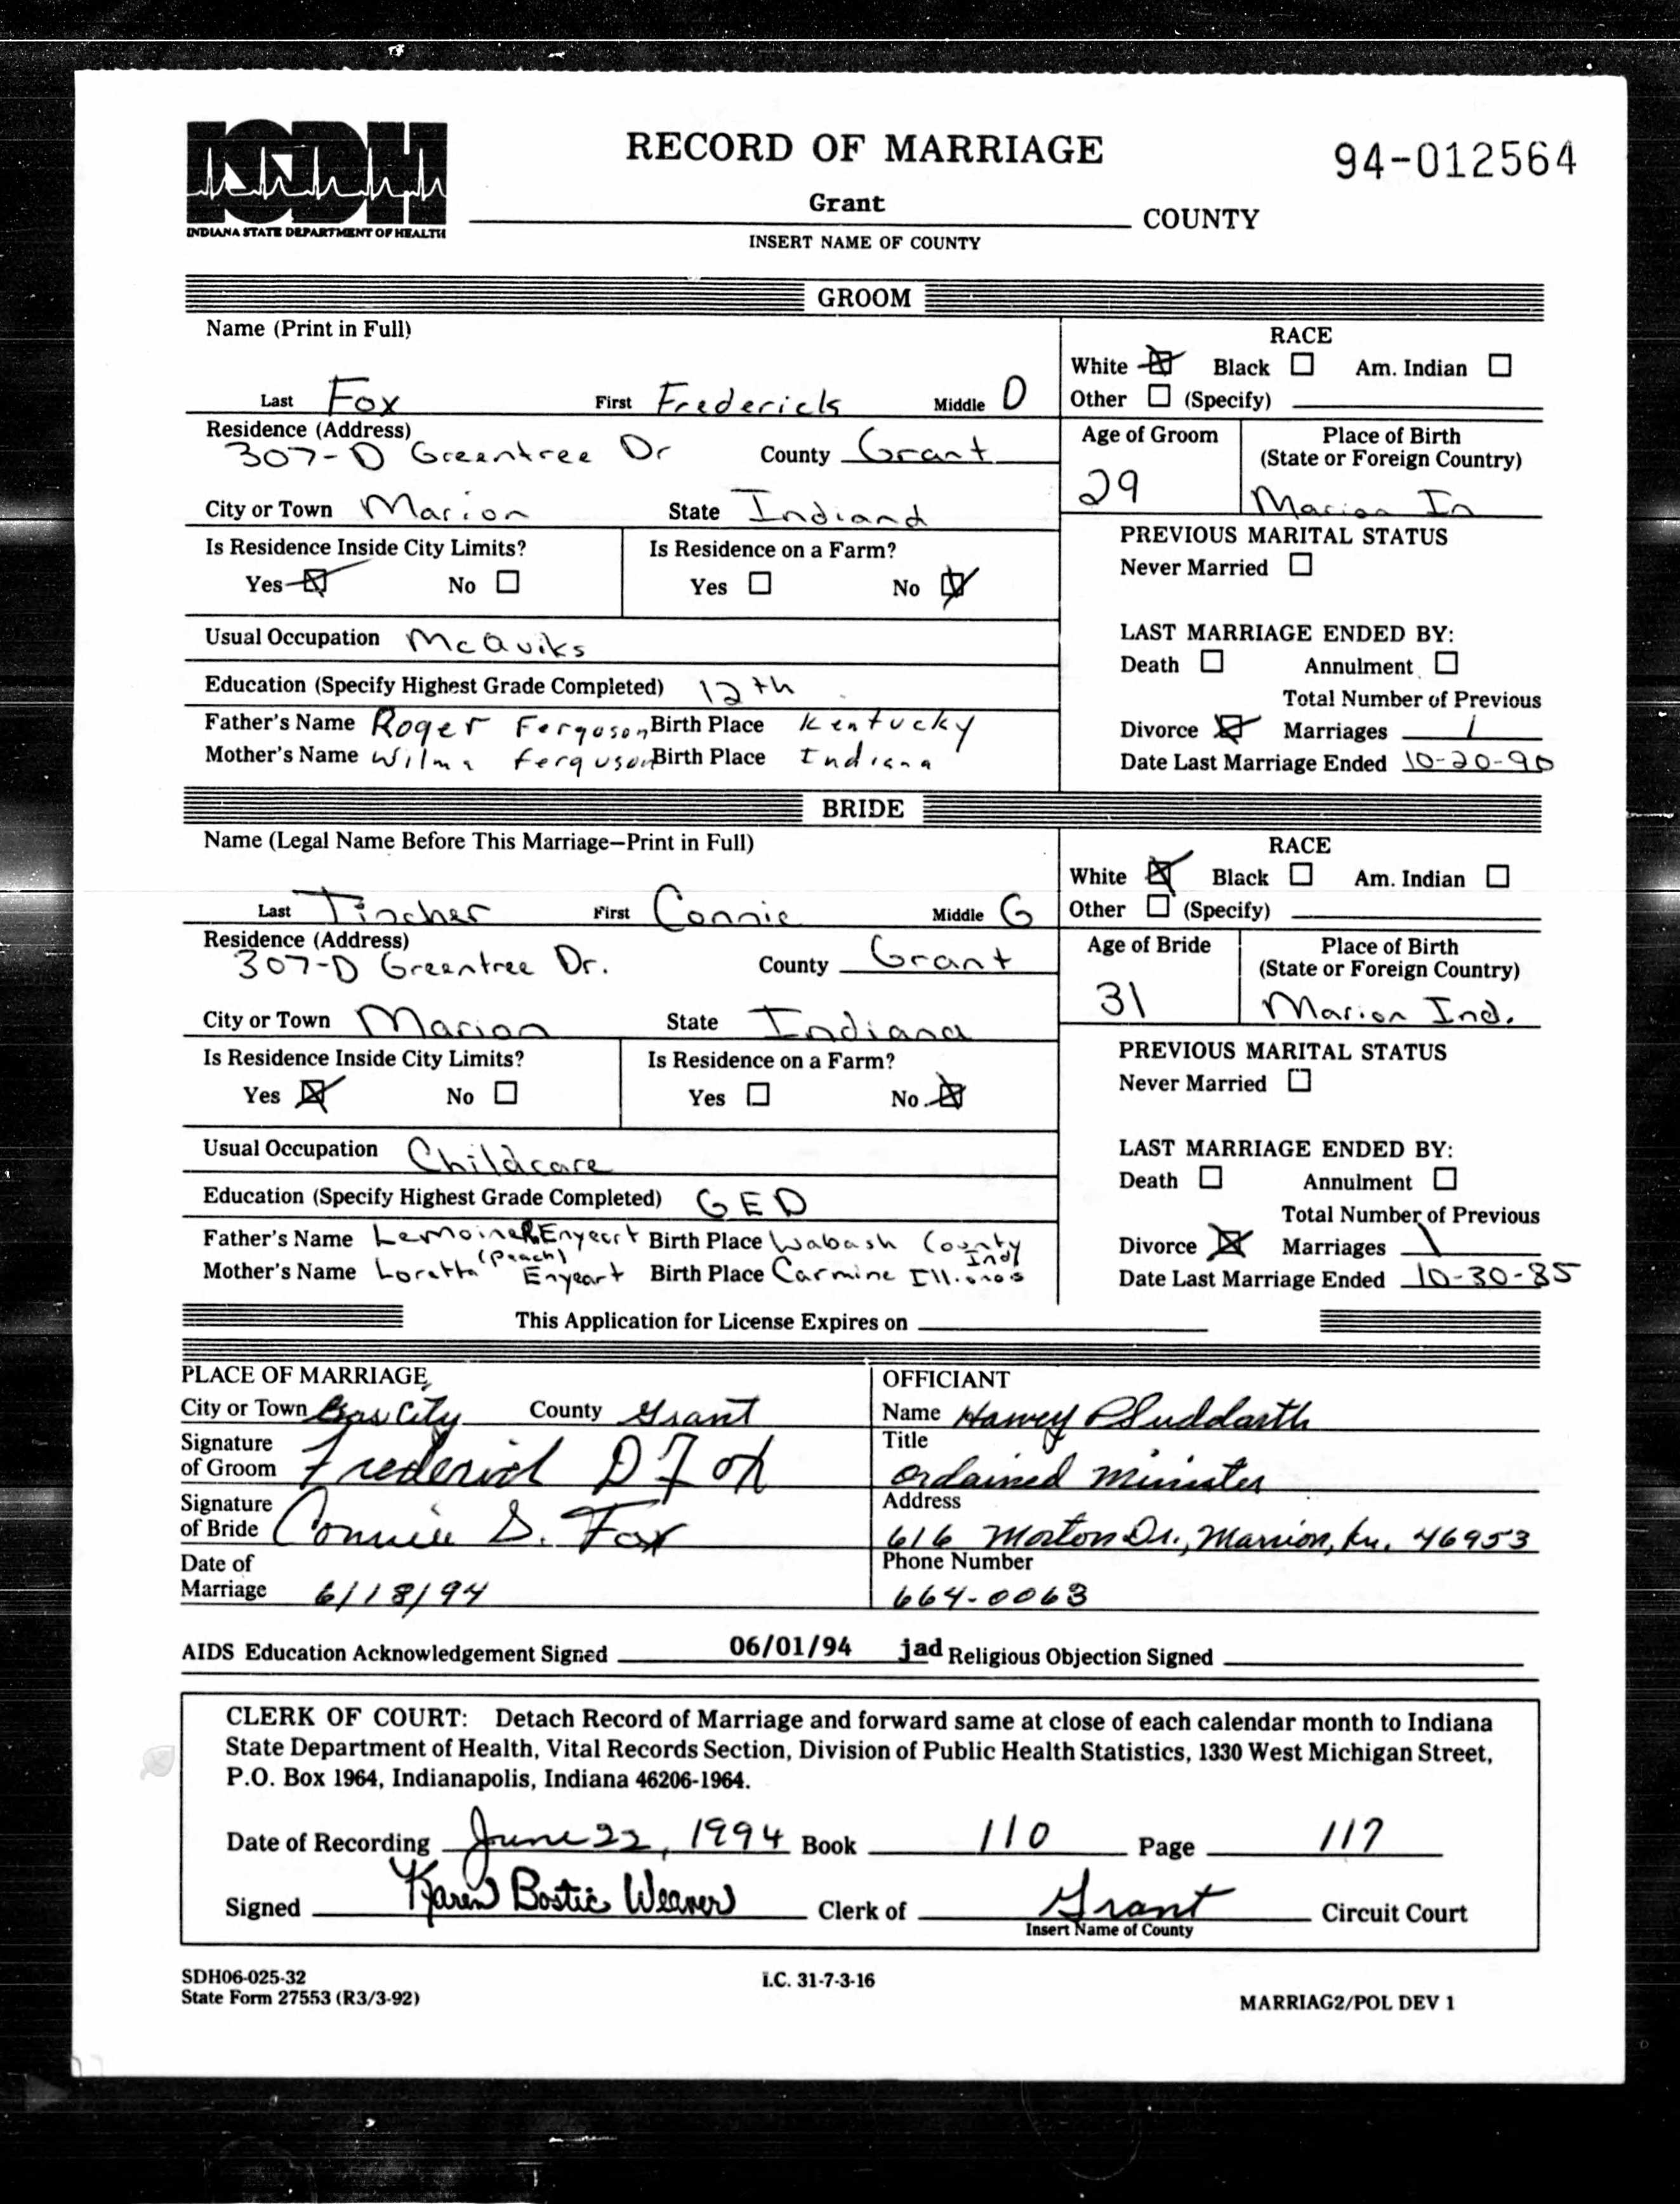 ISDH
INDIANA STATE DEPARTMENT OF HEALTH
RECORD OF MARRIAGE
94-012564
Grant COUNTY
INSERT NAME OF COUNTY
GROOM
Name (Print in Full)
Last Fox First Frederick Middle D
RACE
White ☒ Black ☐ Am. Indian ☐
Other ☐ (Specify)
Residence (Address)
307-D Greentree Dr County Grant
City or Town Marion State Indiana
Age of Groom
29
Place of Birth
(State or Foreign Country)
Marion In
Is Residence Inside City Limits?
Yes ☒ No ☐
Is Residence on a Farm?
Yes ☐ No ☒
PREVIOUS MARITAL STATUS
Never Married ☐
Usual Occupation McQuiks
Education (Specify Highest Grade Completed) 12th
Father's Name Roger Ferguson Birth Place Kentucky
Mother's Name Wilma Ferguson Birth Place Indiana
LAST MARRIAGE ENDED BY:
Death ☐ Annulment ☐
Total Number of Previous
Divorce ☒ Marriages 1
Date Last Marriage Ended 10-20-90
BRIDE
Name (Legal Name Before This Marriage—Print in Full)
Last Tincher First Connie Middle G
RACE
White ☒ Black ☐ Am. Indian ☐
Other ☐ (Specify)
Residence (Address)
307-D Greentree Dr. County Grant
City or Town Marion State Indiana
Age of Bride
31
Place of Birth
(State or Foreign Country)
Marion Ind.
Is Residence Inside City Limits?
Yes ☒ No ☐
Is Residence on a Farm?
Yes ☐ No ☒
PREVIOUS MARITAL STATUS
Never Married ☐
Usual Occupation Childcare
Education (Specify Highest Grade Completed) GED
Father's Name Lemoine R Enyeart Birth Place Wabash County Ind
Mother's Name Loretta (Peach) Enyeart Birth Place Carmine Illinois
LAST MARRIAGE ENDED BY:
Death ☐ Annulment ☐
Total Number of Previous
Divorce ☒ Marriages 1
Date Last Marriage Ended 10-30-85
This Application for License Expires on
PLACE OF MARRIAGE
City or Town Gas City County Grant
Signature
of Groom Frederick D Fox
Signature
of Bride Connie G. Fox
Date of
Marriage 6/18/94
OFFICIANT
Name Harvey P Suddarth
Title
Ordained Minister
Address
616 Morton Dr., Marion, In. 46953
Phone Number
664-0063
AIDS Education Acknowledgement Signed 06/01/94 jad Religious Objection Signed
CLERK OF COURT: Detach Record of Marriage and forward same at close of each calendar month to Indiana
State Department of Health, Vital Records Section, Division of Public Health Statistics, 1330 West Michigan Street,
P.O. Box 1964, Indianapolis, Indiana 46206-1964.
Date of Recording June 22, 1994 Book 110 Page 117
Signed Karen Bostic Weaver Clerk of Grant Circuit Court
Insert Name of County
SDH06-025-32
State Form 27553 (R3/3-92)
I.C. 31-7-3-16
MARRIAG2/POL DEV 1